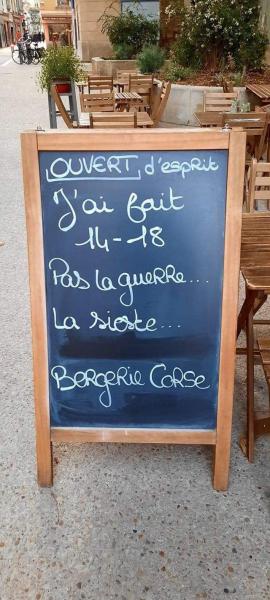 OUVERT d'esprit
J'ai fait
14-18
Pas la guerre...
La sieste...
Bergerie Corse